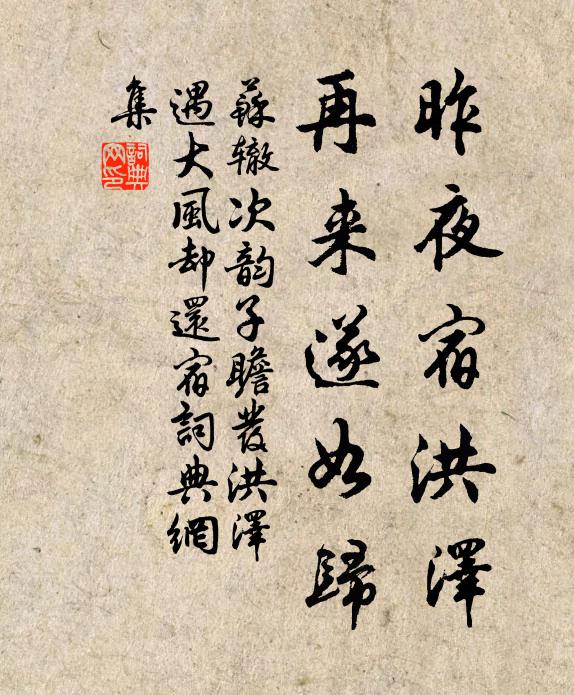 昨夜宿洪澤
再来遂如歸
蘇辙次韵子瞻發洪澤
遇大風却還宿詞典網
集
詞典
网印